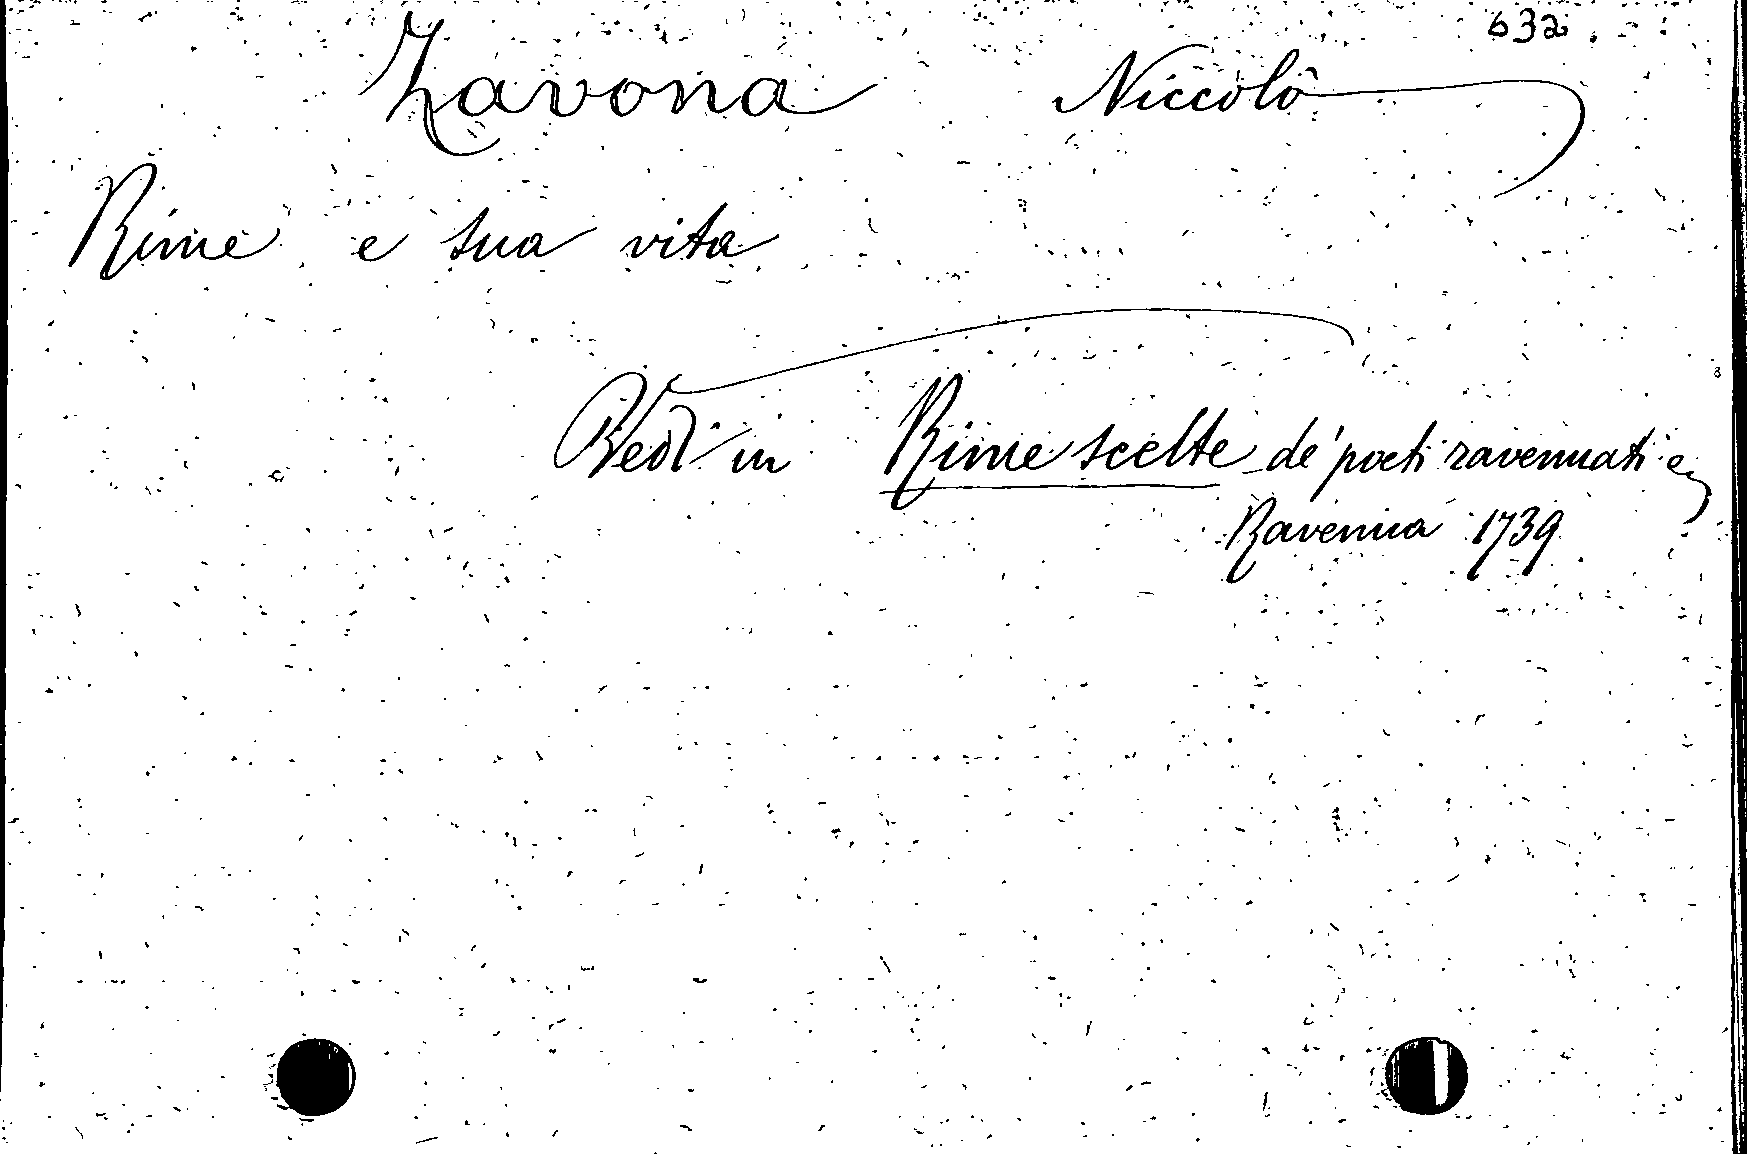 632
Zavona Niccolò
Rime e sua vita
Vedi in Rime scelte de' poeti ravennati e
Ravenna 1739